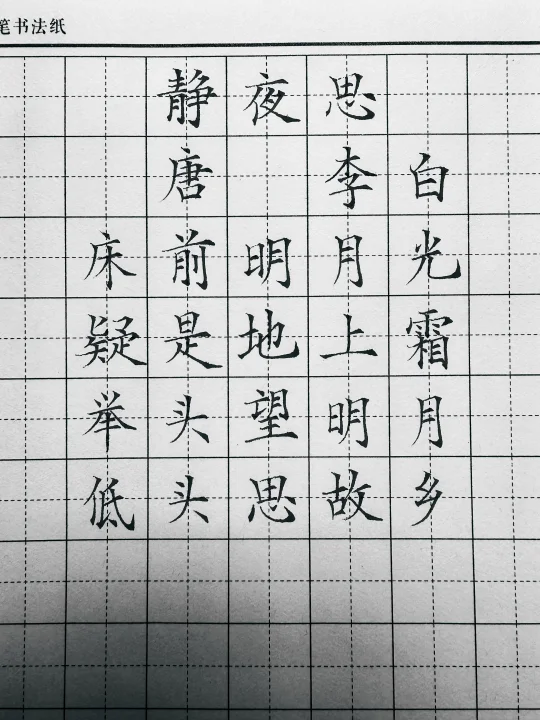 笔书法纸
静夜思
唐 李白
床前明月光
疑是地上霜
举头望明月
低头思故乡